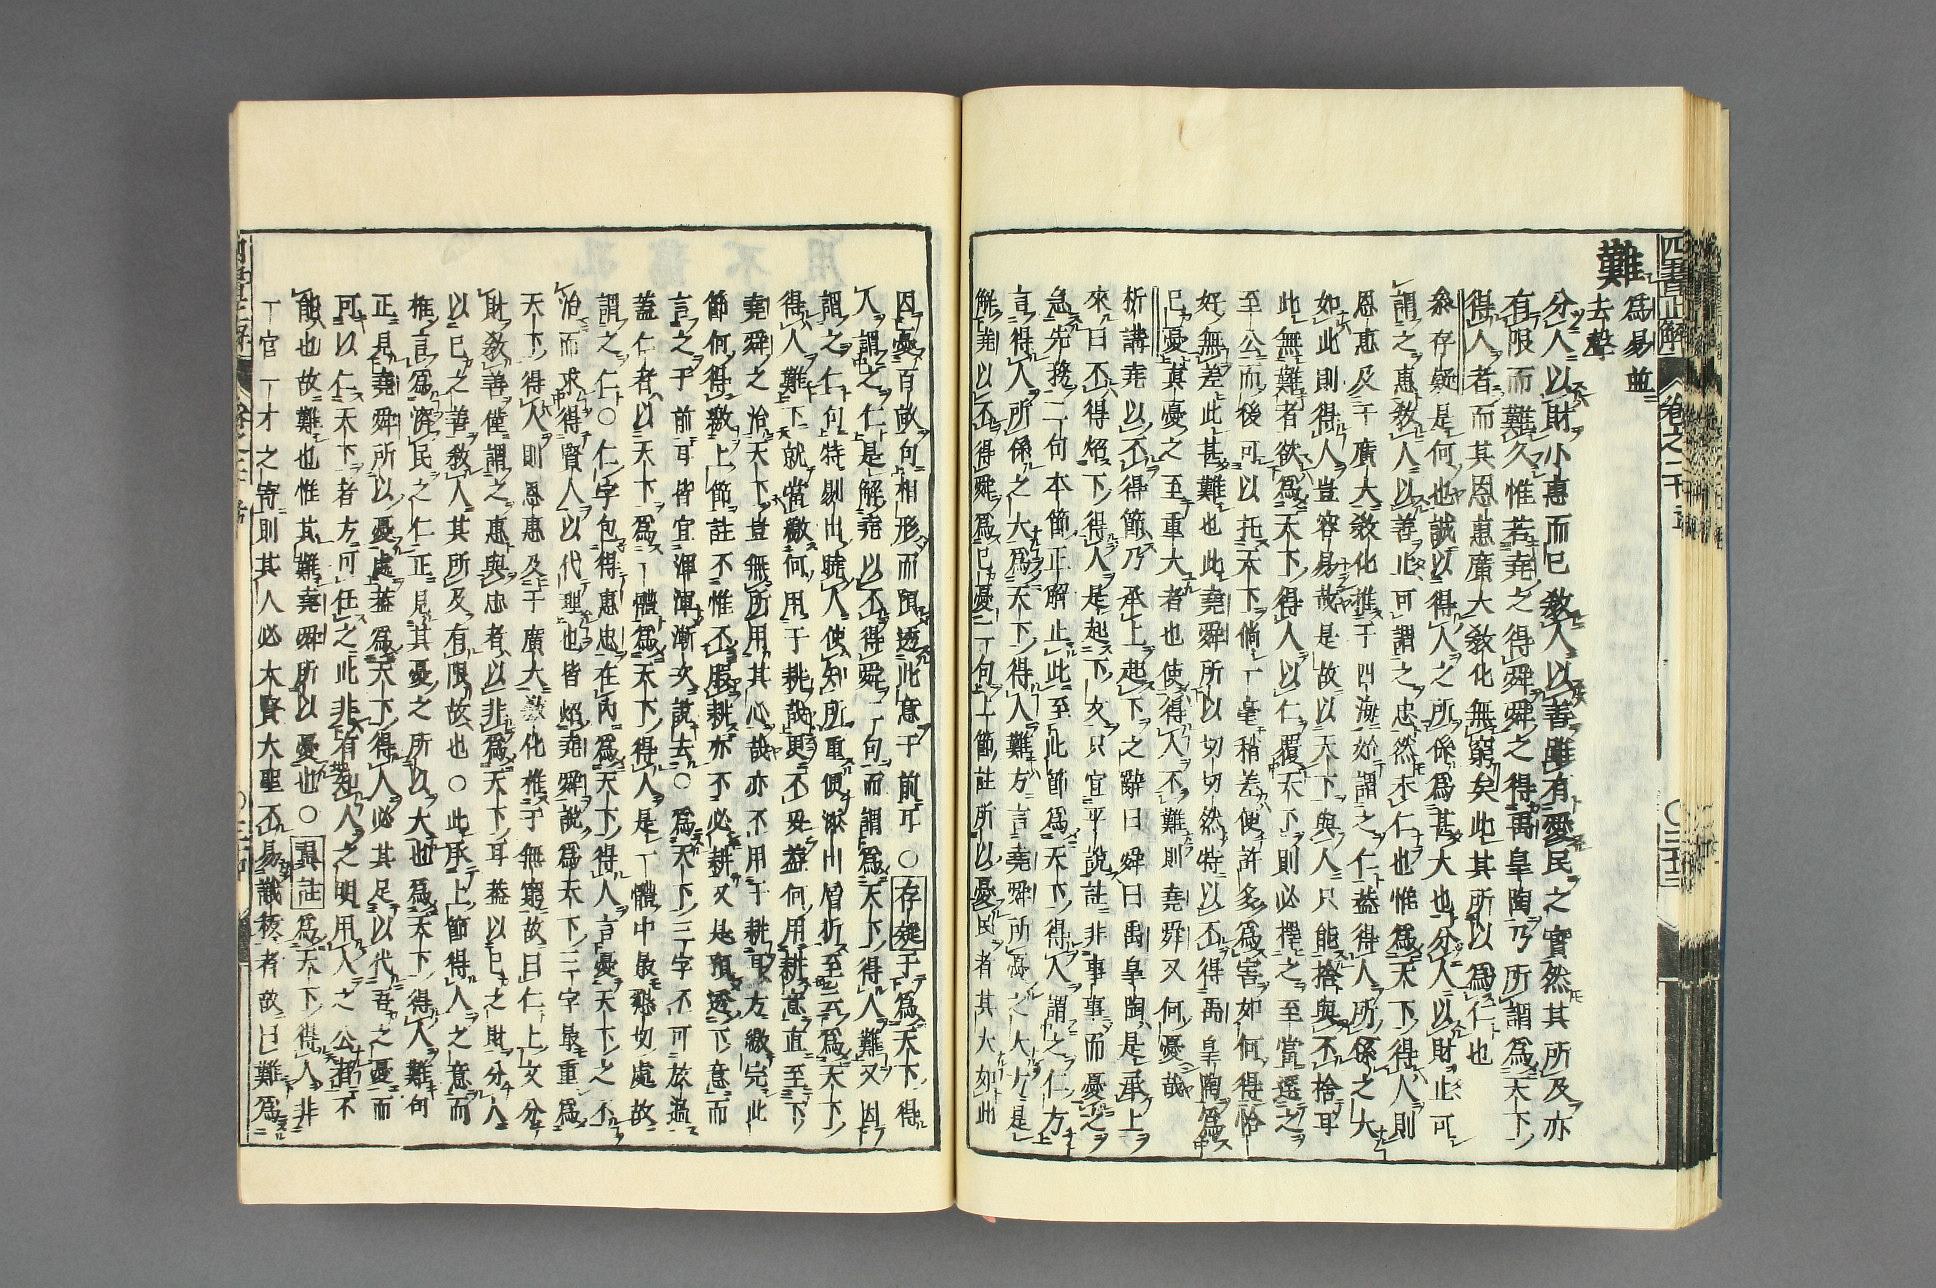 四書正解 卷之二十五
難 爲易並
去聲
分人以財小惠而已敎人以善雖有愛民之實然其所及亦
有限而難久惟若堯之得舜舜之得禹皐陶乃所謂爲天下
得人者而其恩惠廣大敎化無窮矣此其所以爲仁也
叅存疑是何也誠以得人之所係爲甚大也分人以財止可
謂之惠敎人以善止可謂之忠然未仁也惟爲天下得人則
恩惠及于廣大敎化推于四海始謂之仁葢得人所係之大
如此則得人豈容易哉是故以天下與人只能捨與不捨耳
此無難者欲爲天下得人以仁覆天下則必擇之至當選之
至公而後可以托天下倘一毫稍差便許多爲害如何得恰
好無差此甚難也此堯舜所以切切然特以不得禹皐陶爲
已憂眞憂之至重大者也使得人不難則堯舜又何憂哉
析講堯以不得節乃承上起下之辭曰舜曰禹皐陶是承上
來曰不得絕下得人是起下文只宜平說註非事事而憂之
急先務二句本節正解止此至此節爲天下得人謂之仁方
言得人所係之大爲天下得人難方言堯舜所憂之大乃是
解堯以不得舜爲已憂二句上節註所以憂民者其大如此
因憂百畝句相形而預透此意于前耳○存疑于爲天下得
人謂之仁是解堯以不得舜二句而謂爲天下得人難又因
謂之仁句特剔出難人使知所重便派出眉折至云爲天下
得人難下就當繳何用于耕說更不必葢何用耕意直至下
堯舜之治天下豈無所用其心哉亦不用于耕耳方繳完此
節何得繳上節註不惟不暇耕亦不必耕又是預透下意而
言之于前耳皆宜渾渾漸次說去○爲天下三字不可放過
葢仁者以天下爲一體爲天下得人是一體中最懇切處故
謂之仁○仁字包得惠忠在內爲天下得人言憂天下之不
治而求得賢人以代理也皆照堯舜說爲天下三字最重爲
天下得人則恩惠及于廣大敎化推于無窮故曰仁上文分
財敎善僅謂之惠與忠者以非爲天下耳葢以已之財分人
以已之善敎人其所及有限故也○此承上節得人之意而
推言爲濟民之仁正見其憂之所以大也爲天下得人難句
正見堯舜所以憂處葢爲天下得人必其足以代吾之憂而
可以仁天下者方可任之此非有知人之明用人之公者不
能也故難也惟其難堯舜所以憂也○異註爲天下得人非
一官一才之寄則其人必大賢大聖不易識拔者故曰難爲